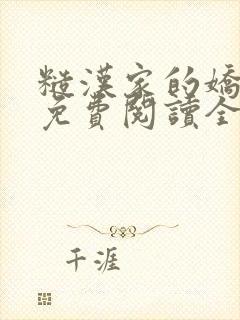 糙漢家的嬌
免費閱讀全
千涯